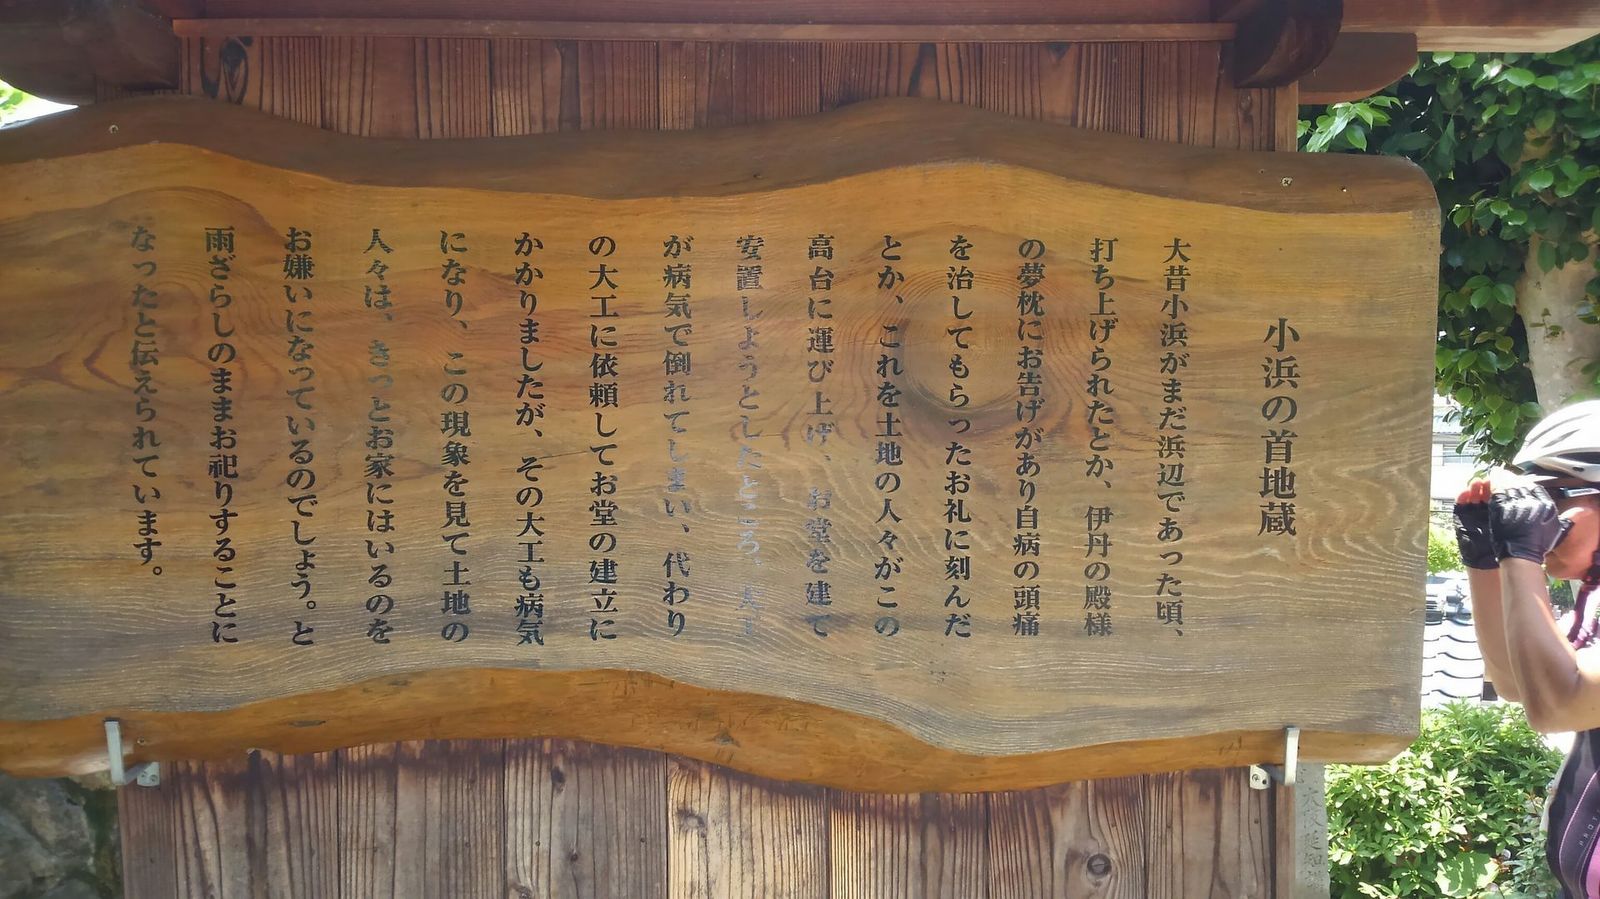 小浜の首地蔵
大昔小浜がまだ浜辺であった頃、
打ち上げられたとか、伊丹の殿様
の夢枕にお告げがあり自病の頭痛
を治してもらったお礼に刻んだ
とか、これを土地の人々がこの
高台に運び上げ、お堂を建て
安置しようとしたところ、大工
が病気で倒れてしまい、代わり
の大工に依頼してお堂の建立に
かかりましたが、その大工も病気
になり、この現象を見て土地の
人々は、きっとお家にはいるのを
お嫌いになっているのでしょう。と
雨ざらしのままお祀りすることに
なったと伝えられています。